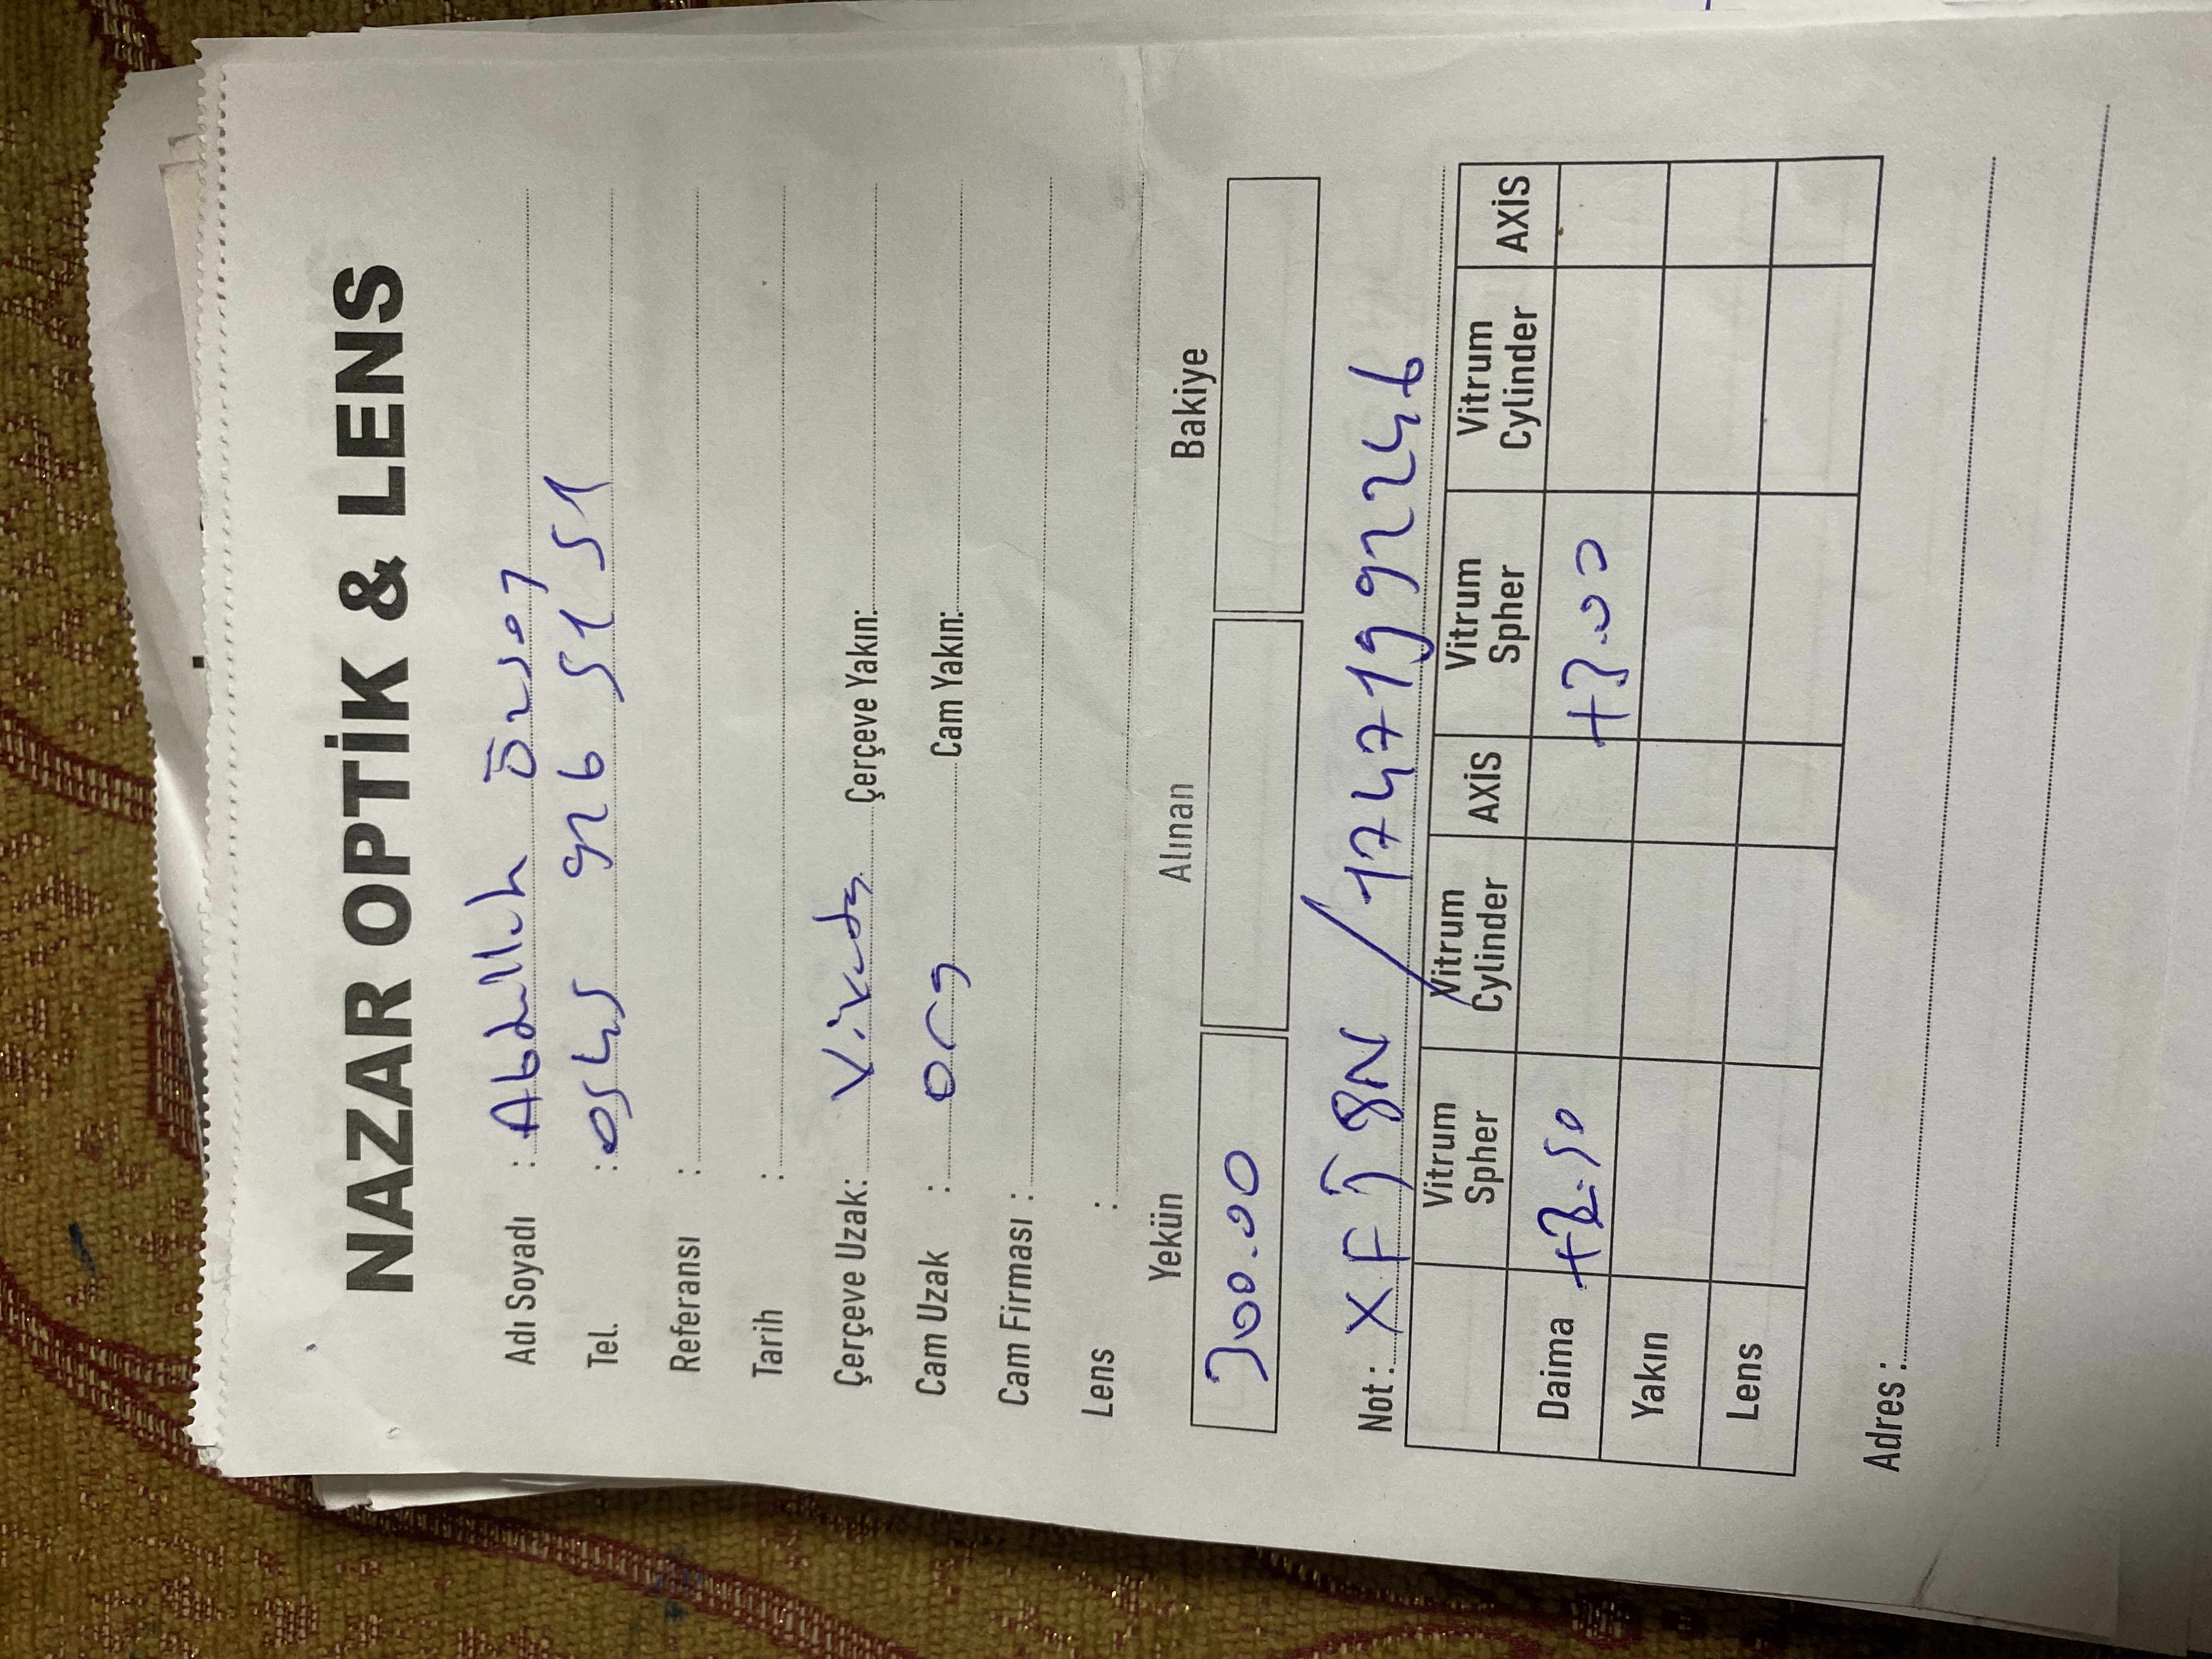 NAZAR OPTİK & LENS
Adı Soyadı : Abdullah Özsoy
Tel. : 0545 926 51 51
Referansı :
Tarih :
Çerçeve Uzak: Çerçeve Yakın:
Cam Uzak : org Cam Yakın:
Cam Firması :
Lens :
Yekün Alınan Bakiye
300.00
Not : / 17471992246
Vitrum Spher Vitrum Cylinder AXİS Vitrum Spher Vitrum Cylinder AXİS
Daima +3.00
Yakın
Lens
Adres :